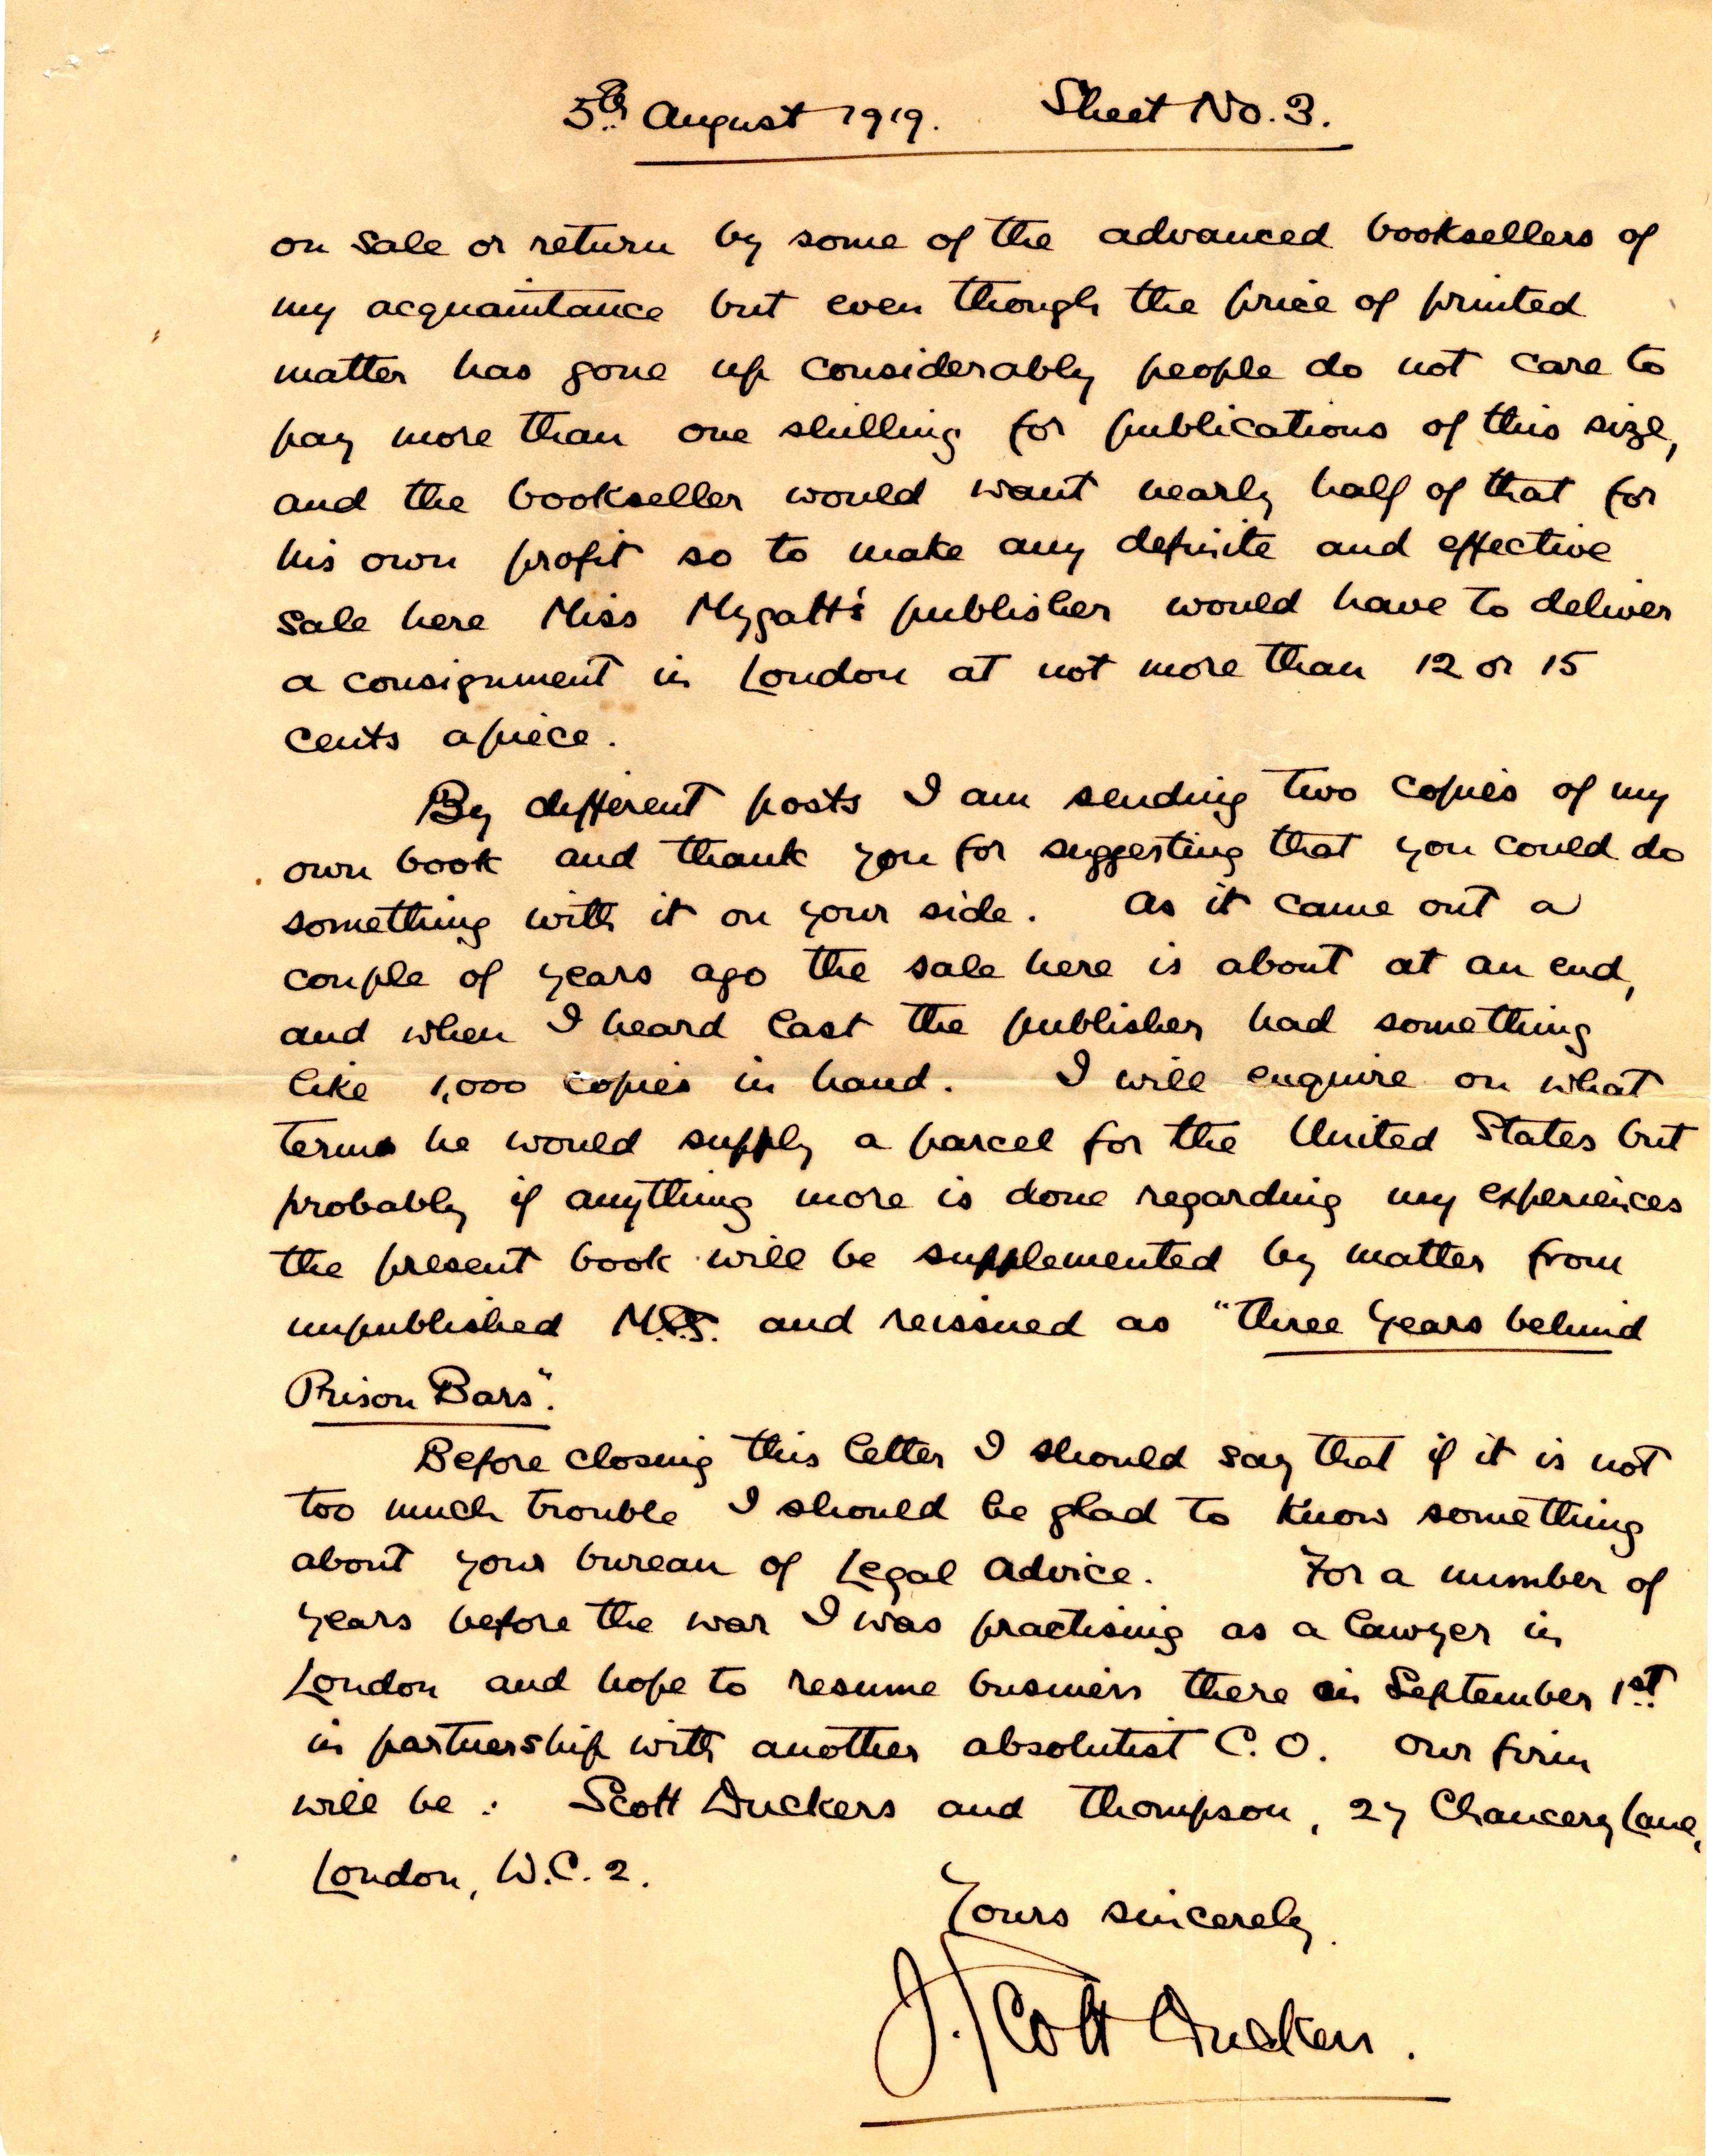 5th August 1919. Sheet No. 3.
on sale or return by some of the advanced booksellers of
my acquaintance but even though the price of printed
matter has gone up considerably people do not care to
pay more than one shilling for publications of this size,
and the bookseller would want nearly half of that for
his own profit so to make any definite and effective
sale here Miss Mygatt's publisher would have to deliver
a consignment in London at not more than 12 or 15
cents apiece.
By different posts I am sending two copies of my
own book and thank you for suggesting that you could do
something with it on your side. As it came out a
couple of years ago the sale here is about at an end,
and when I heard last the publisher had something
like 1,000 copies in hand. I will enquire on what
terms he would supply a parcel for the United States but
probably if anything more is done regarding my experiences
the present book will be supplemented by matter from
unpublished M.S.S. and reissued as "Three Years behind
Prison Bars".
Before closing this letter I should say that if it is not
too much trouble I should be glad to know something
about your bureau of Legal Advice. For a number of
years before the war I was practising as a lawyer in
London and hope to resume business there on September 1st.
in partnership with another absolutist C.O. Our firm
will be: Scott Duckers and Thompson, 27 Chancery Lane,
London, W.C.2.
Yours sincerely
J. Scott Duckers.